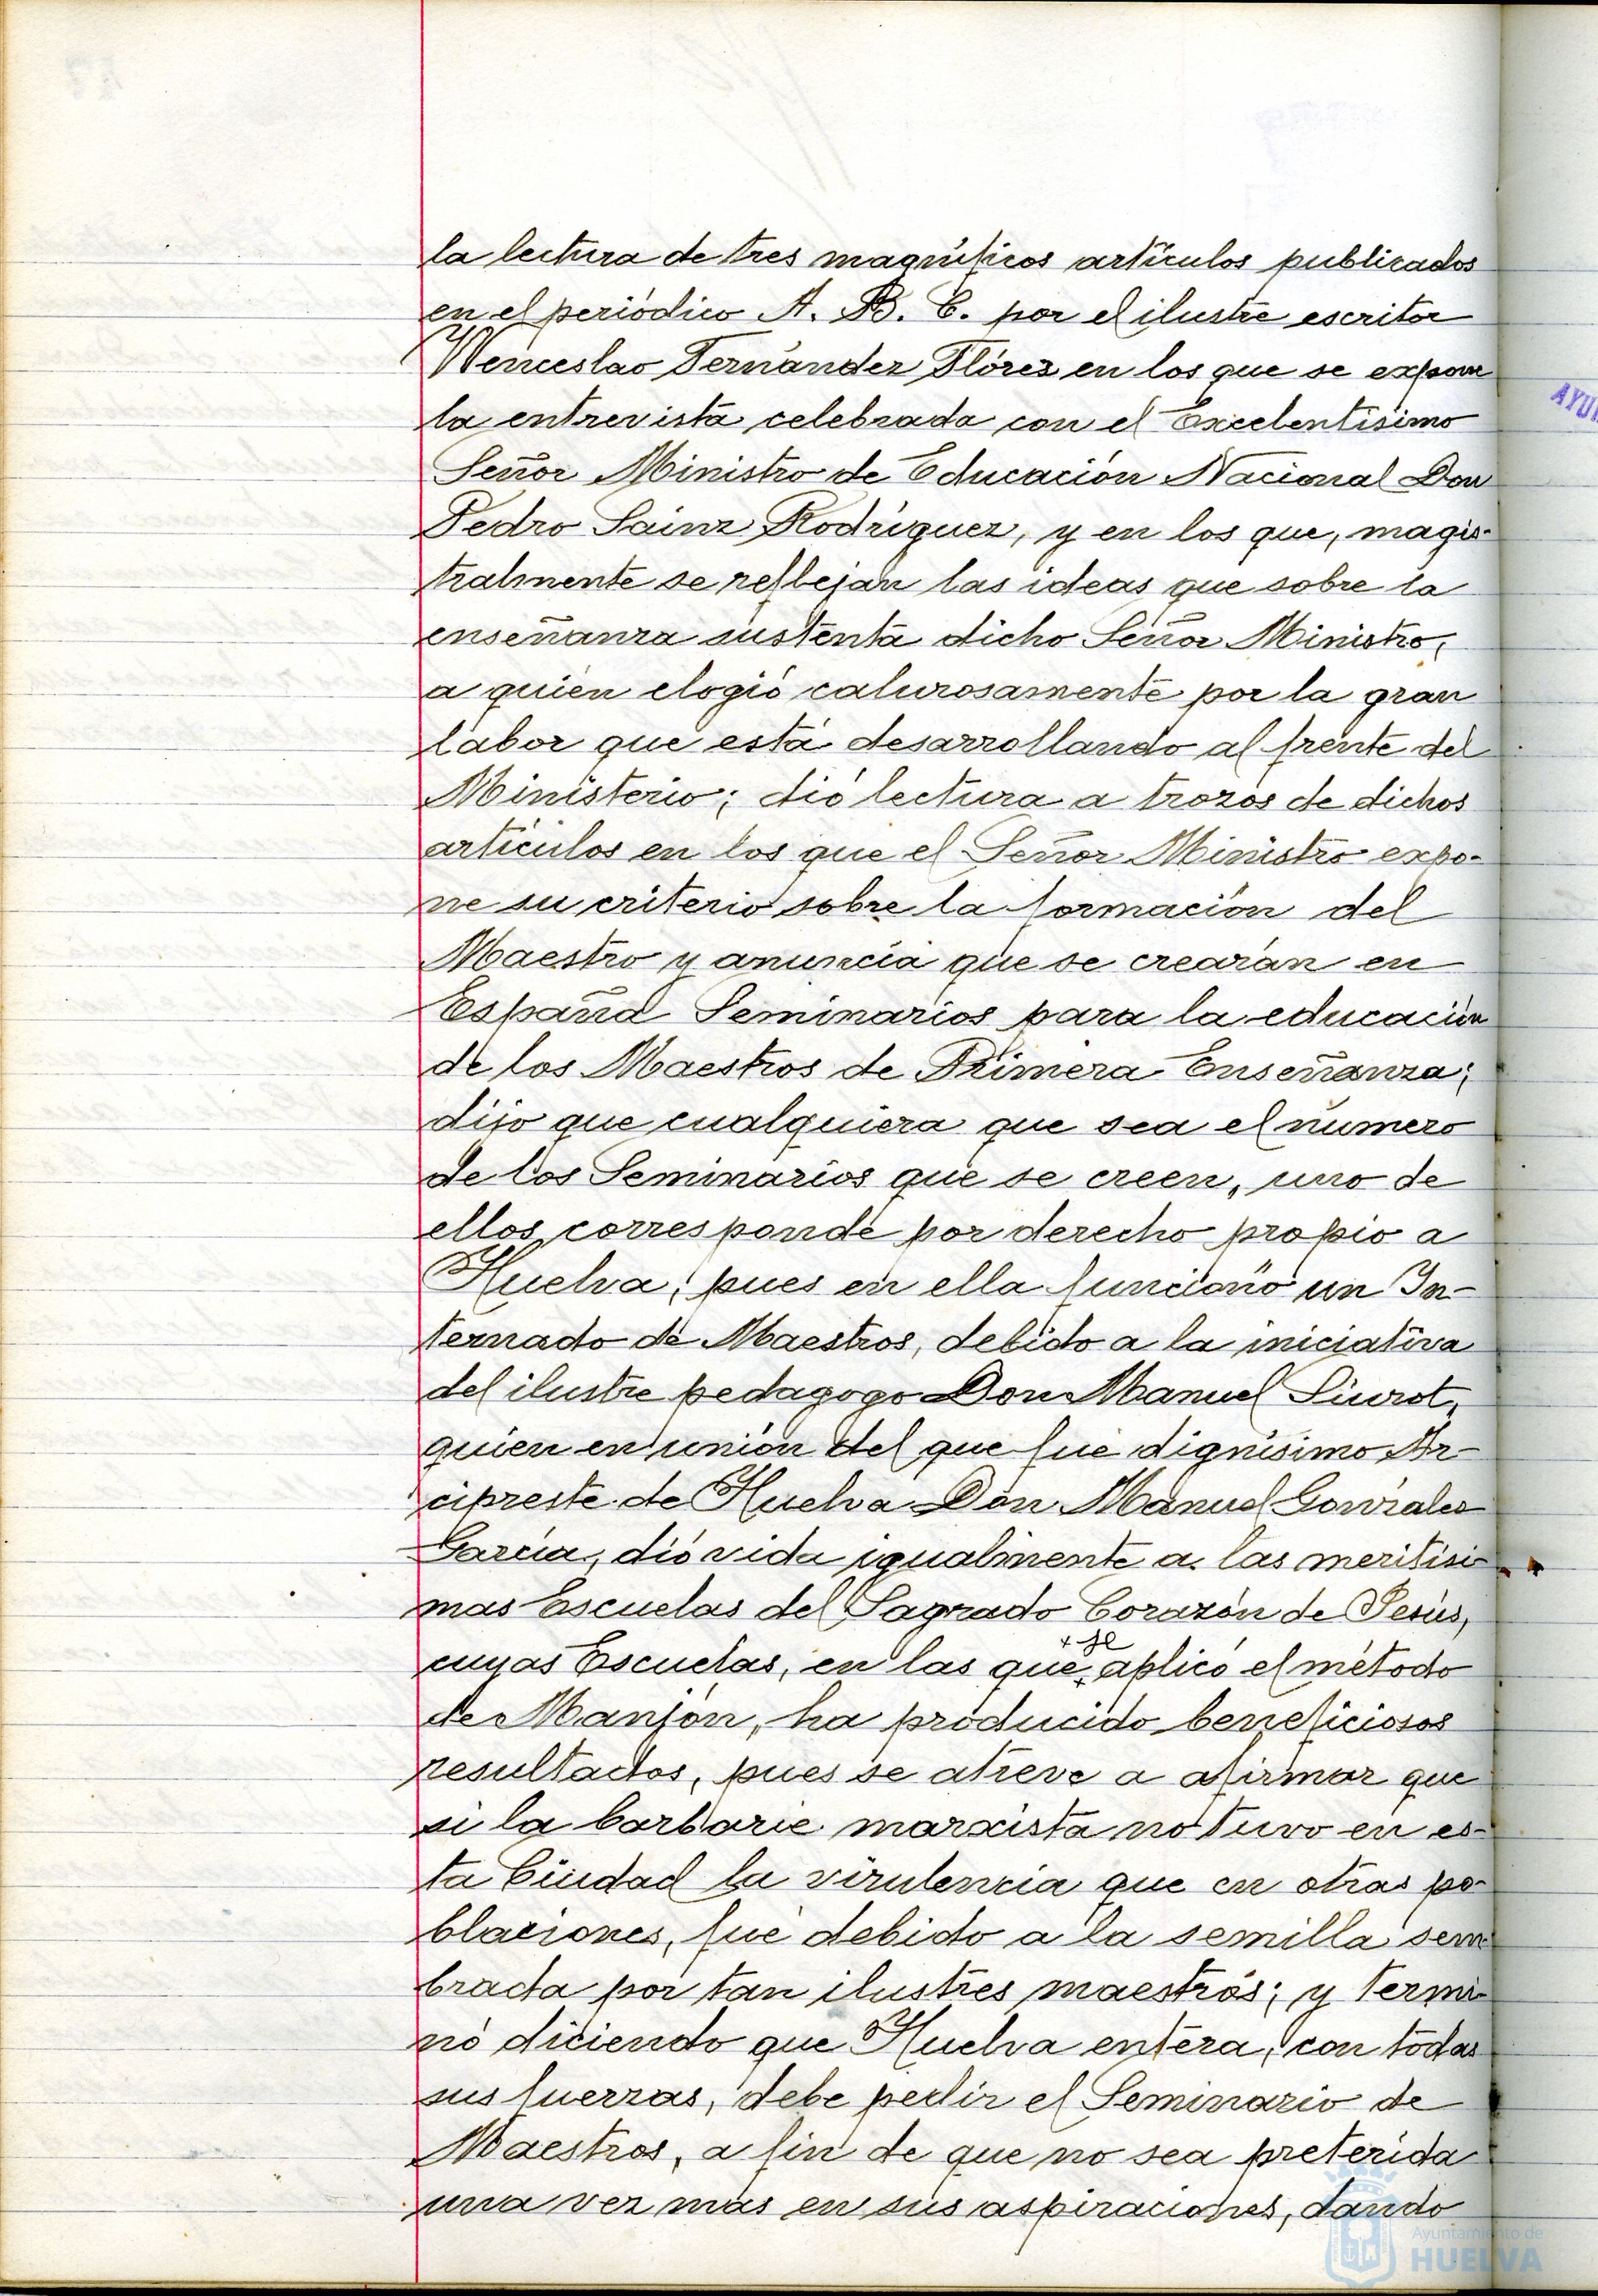 la lectura de tres magníficos artículos publicados
en el periódico A. B. C. por el ilustre escritor
Wenceslao Fernández Flórez en los que se expone
la entrevista celebrada con el Excelentísimo
Señor Ministro de Educación Nacional Don
Pedro Sainz Rodríguez, y en los que, magis-
tralmente se reflejan las ideas que sobre la
enseñanza sustenta dicho Señor Ministro,
a quien elogió calurosamente por la gran
labor que está desarrollando al frente del
Ministerio; dió lectura a trozos de dichos
artículos en los que el Señor Ministro expo-
ne su criterio sobre la formación del
Maestro y anuncia que se crearán en
España Seminarios para la educación
de los Maestros de Primera Enseñanza;
dijo que cualquiera que sea el número
de los Seminarios que se creen, uno de
ellos corresponde por derecho propio a
Huelva, pues en ella funcionó un In-
ternado de Maestros, debido a la iniciativa
del ilustre pedagogo Don Manuel Siurot,
quien en unión del que fué dignísimo Ar-
cipreste de Huelva Don Manuel González
García, dió vida igualmente a las meritísi-
mas Escuelas del Sagrado Corazón de Jesús,
+ se
cuyas Escuelas, en las que + aplicó el método
de Manjón, ha producido beneficiosos
resultados, pues se atreve a afirmar que
si la barbarie marxista no tuvo en es-
ta Ciudad la virulencia que en otras po-
blaciones, fué debido a la semilla sem
brada por tan ilustres maestros; y termi-
nó diciendo que Huelva entera, con todas
sus fuerzas, debe pedir el Seminario de
Maestros, a fin de que no sea preterida
una vez más en sus aspiraciones, dando
AYU
Ayuntamiento de
HUELVA